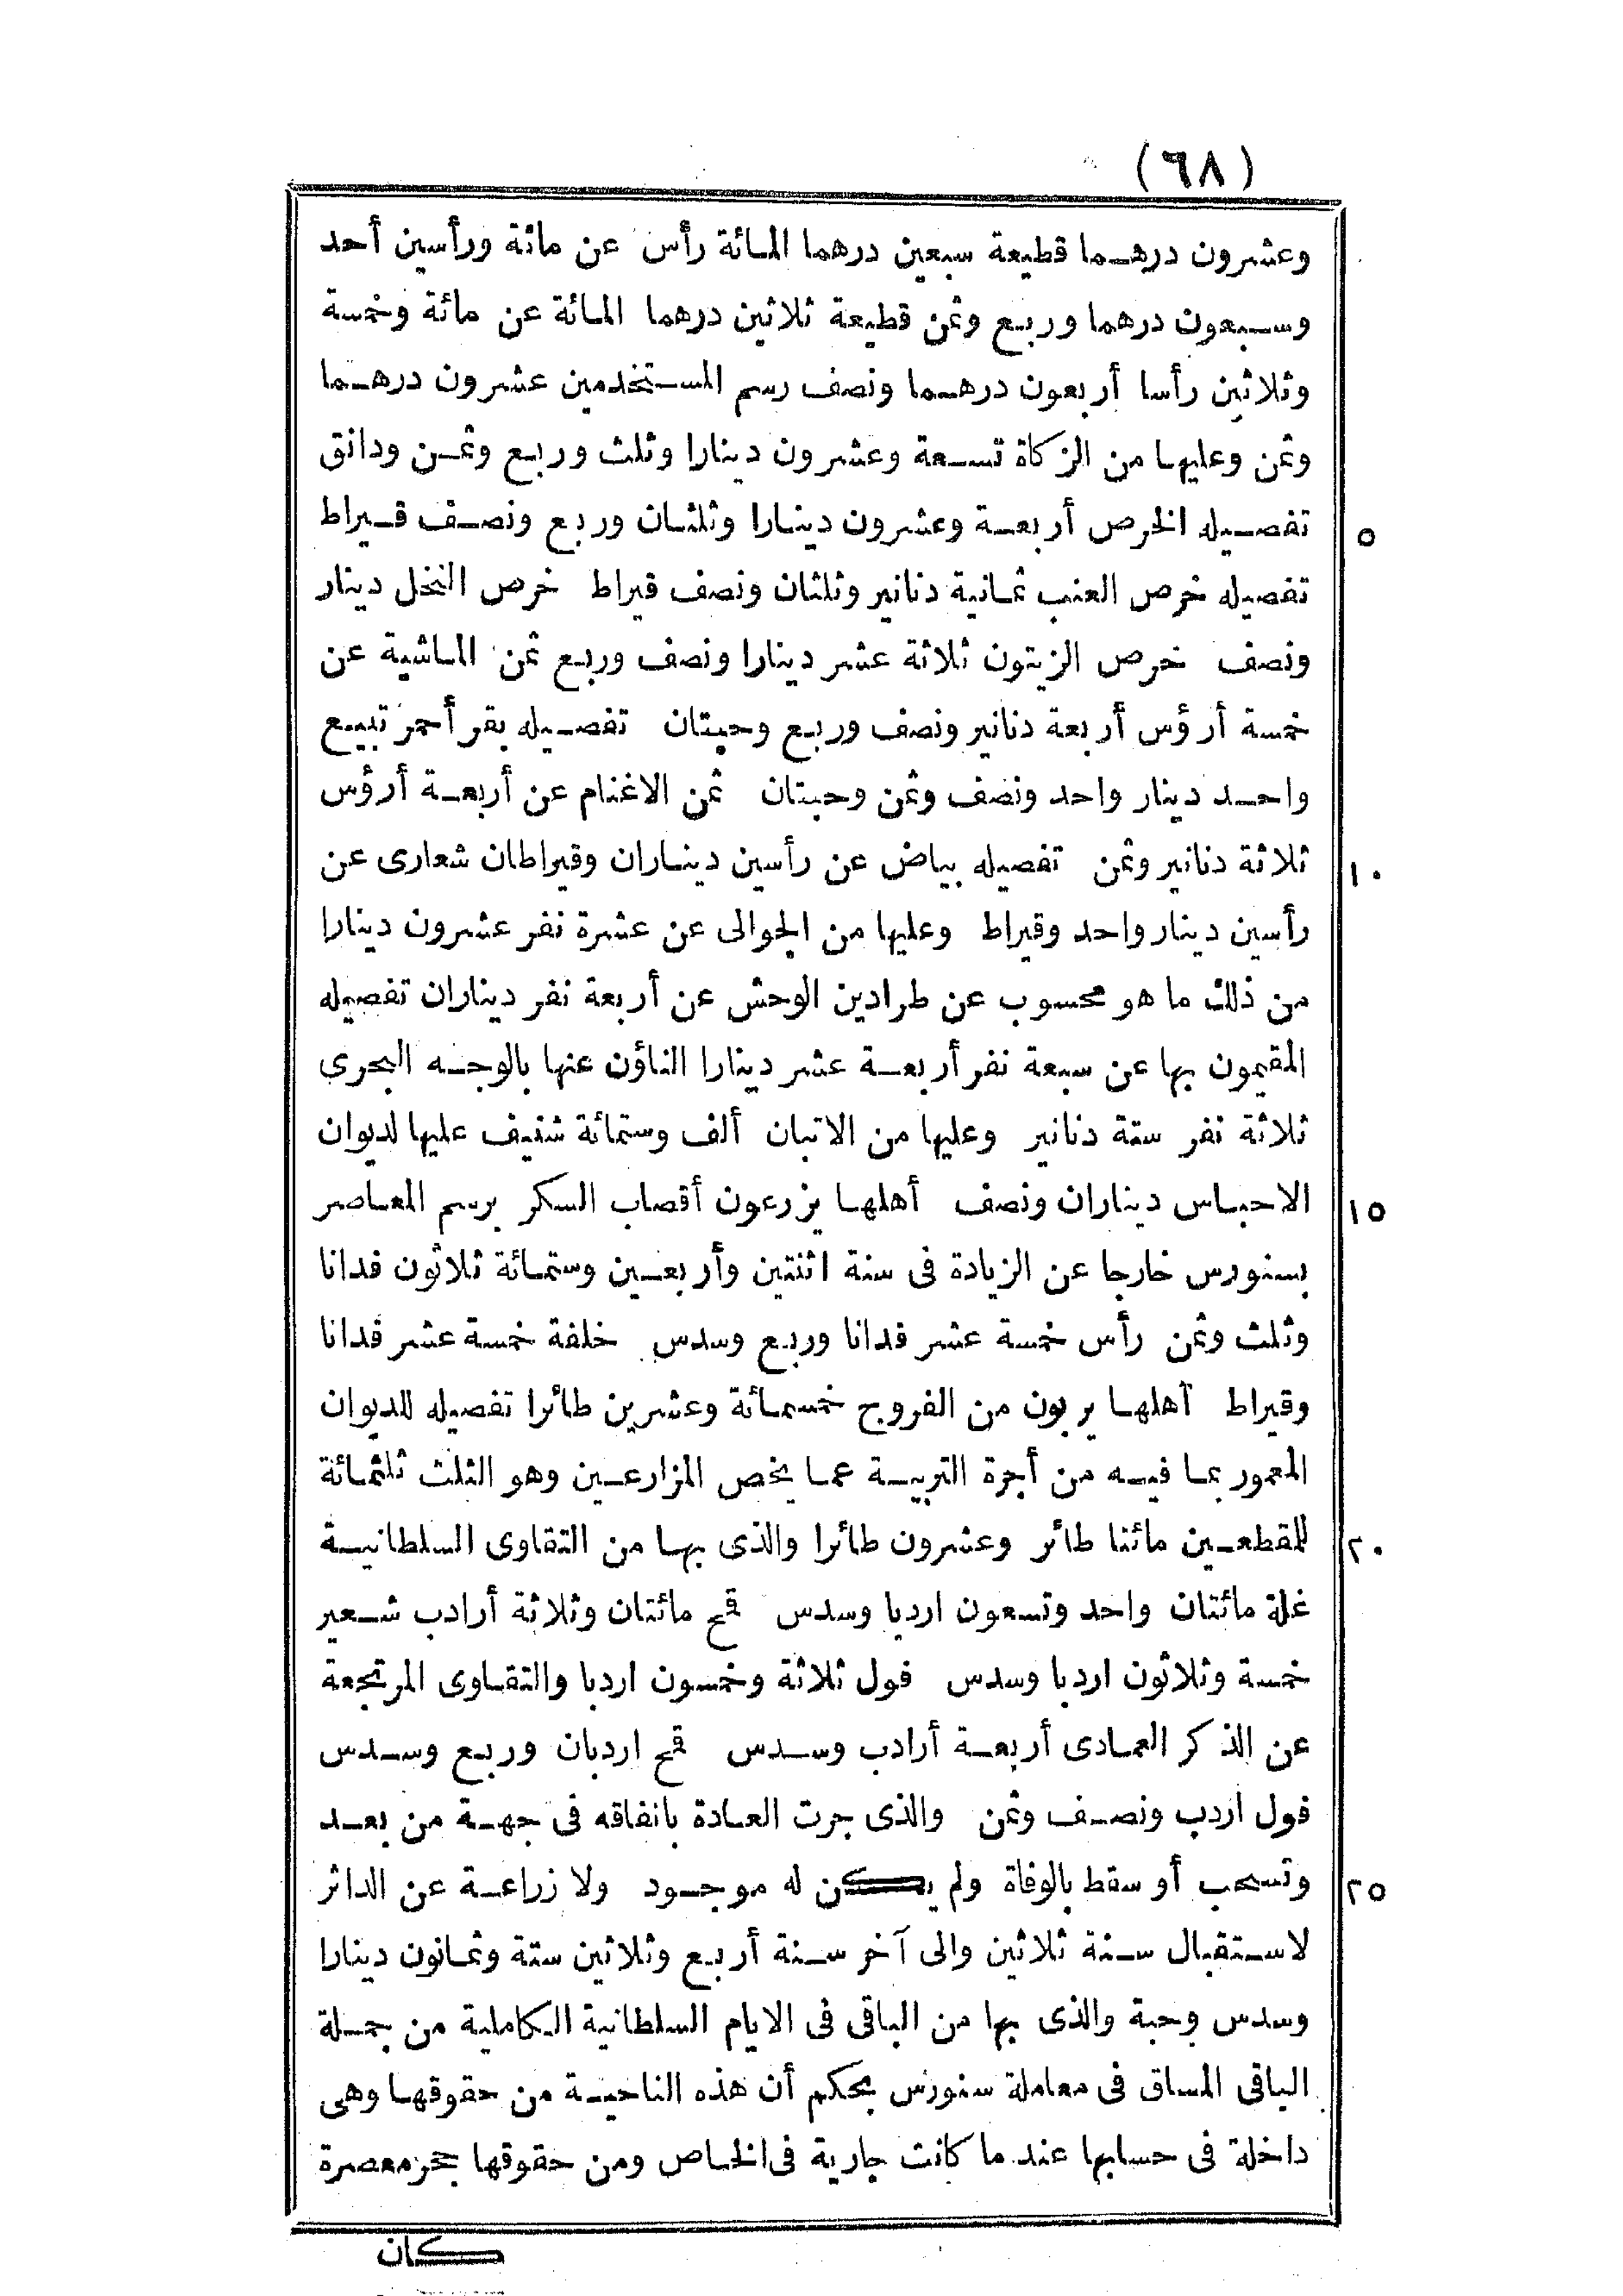 (٦٨)
وعشرون درهما قطيعة سبعين درهما المائة رأس عن مائة ورأسين أحد
وسبعون درهما وربع وثمن قطيعة ثلاثين درهما المائة عن مائة وخمسة
وثلاثين رأسا أربعون درهما ونصف رسم المستخدمين عشرون درهما
وثمن وعليها من الزكاة تسعة وعشرون دينارا وثلث وربع وثمن ودانق
تفصيله الخرص أربعة وعشرون دينارا وثلثان وربع ونصف قيراط
٥
تفصيله خرص العنب ثمانية دنانير وثلثان ونصف قيراط خرص النخل دينار
ونصف خرص الزيتون ثلاثة عشر دينارا ونصف وربع ثمن الماشية عن
خمسة أرؤس أربعة دنانير ونصف وربع وحبتان تفصيله بقر أحمر تبيع
واحد دينار واحد ونصف وثمن وحبتان ثمن الاغنام عن أربعة أرؤس
ثلاثة دنانير وثمن تفصيله بياض عن رأسين ديناران وقيراطان شعارى عن
١٠
رأسين دينار واحد وقيراط وعليها من الجوالى عن عشرة نفر عشرون دينارا
من ذلك ما هو محسوب عن طرادين الوحش عن أربعة نفر ديناران تفصيله
المقيمون بها عن سبعة نفر أربعة عشر دينارا الناؤن عنها بالوجه البحرى
ثلاثة نفر ستة دنانير وعليها من الاتبان ألف وستمائة شنيف عليها لديوان
الاحباس ديناران ونصف أهلها يزرعون أقصاب السكر برسم المعاصر
١٥
بسنورس خارجا عن الزيادة فى سنة اثنتين وأربعين وستمائة ثلاثون فدانا
وثلث وثمن رأس خمسة عشر فدانا وربع وسدس خلفة خمسة عشر فدانا
وقيراط أهلها يربون من الفروج خمسمائة وعشرين طائرا تفصيله للديوان
المعمور بما فيه من أجرة التربية عما يخص المزارعين وهو الثلث ثلثمائة
للمقطعين مائتا طائر وعشرون طائرا والذى بها من التقاوى السلطانية
٢٠
غلة مائتان واحد وتسعون اردبا وسدس قمح مائتان وثلاثة أرادب شعير
خمسة وثلاثون اردبا وسدس فول ثلاثة وخمسون اردبا والتقاوى المرتجعة
عن الذكر العمادى أربعة أرادب وسدس قمح اردبان وربع وسدس
فول اردب ونصف وثمن والذى جرت العادة بانفاقه فى جهة من بعد
وتسحب أو سقط بالوفاة ولم يكن له موجود ولا زراعة عن الداثر
٢٥
لاستقبال سنة ثلاثين والى آخر سنة أربع وثلاثين ستة وثمانون دينارا
وسدس وحبة والذى بها من الباقى فى الايام السلطانية الكاملية من جملة
الباقى المساق فى معاملة سنورس بحكم أن هذه الناحية من حقوقها وهى
داخلة فى حسابها عند ما كانت جارية فى الخاص ومن حقوقها حجر معصرة
كان